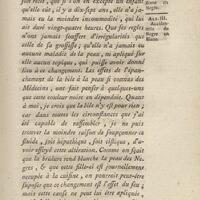 jours réglé, que si l'on en excepte un enfant
qu'elle eut, il y a dix-sept ans, elle n'a ja-
mais eu la moindre incommodité, qui lui
ait duré vingt-quatre heures. Que ses règles
n'ont jamais souffert d'irrégularités que
celles de sa grossesse; qu'elle n'a jamais eu
aucune maladie de la peau, ni appliqué sur
elle aucun topique, qui puisse avoir donné
lieu à ce changement. Les effets de l'épan-
chement de la bile à la peau si connus des
Médecins, ont fait penser à quelques-uns
que cette couleur noire en dépendoit. Quant
à moi, je crois que la bile n'y est pour rien;
car dans toutes les circonstances que j'ai
été capable de rassembler, je n'ai pu
trouver la moindre raison de soupçonner ce
fluide, soit hépatique, soit cistique, d'a-
voir effectué cette altération. Comme on sait
que la brûlure rend blanche la peau des Ne-
gres, & que cette fille-ci est journellement
occupée à la cuisine, on pourroit peut-être
supposer que ce changement est l'effet du feu;
mais cette cause ne peut lui être appliquée
ART. III.